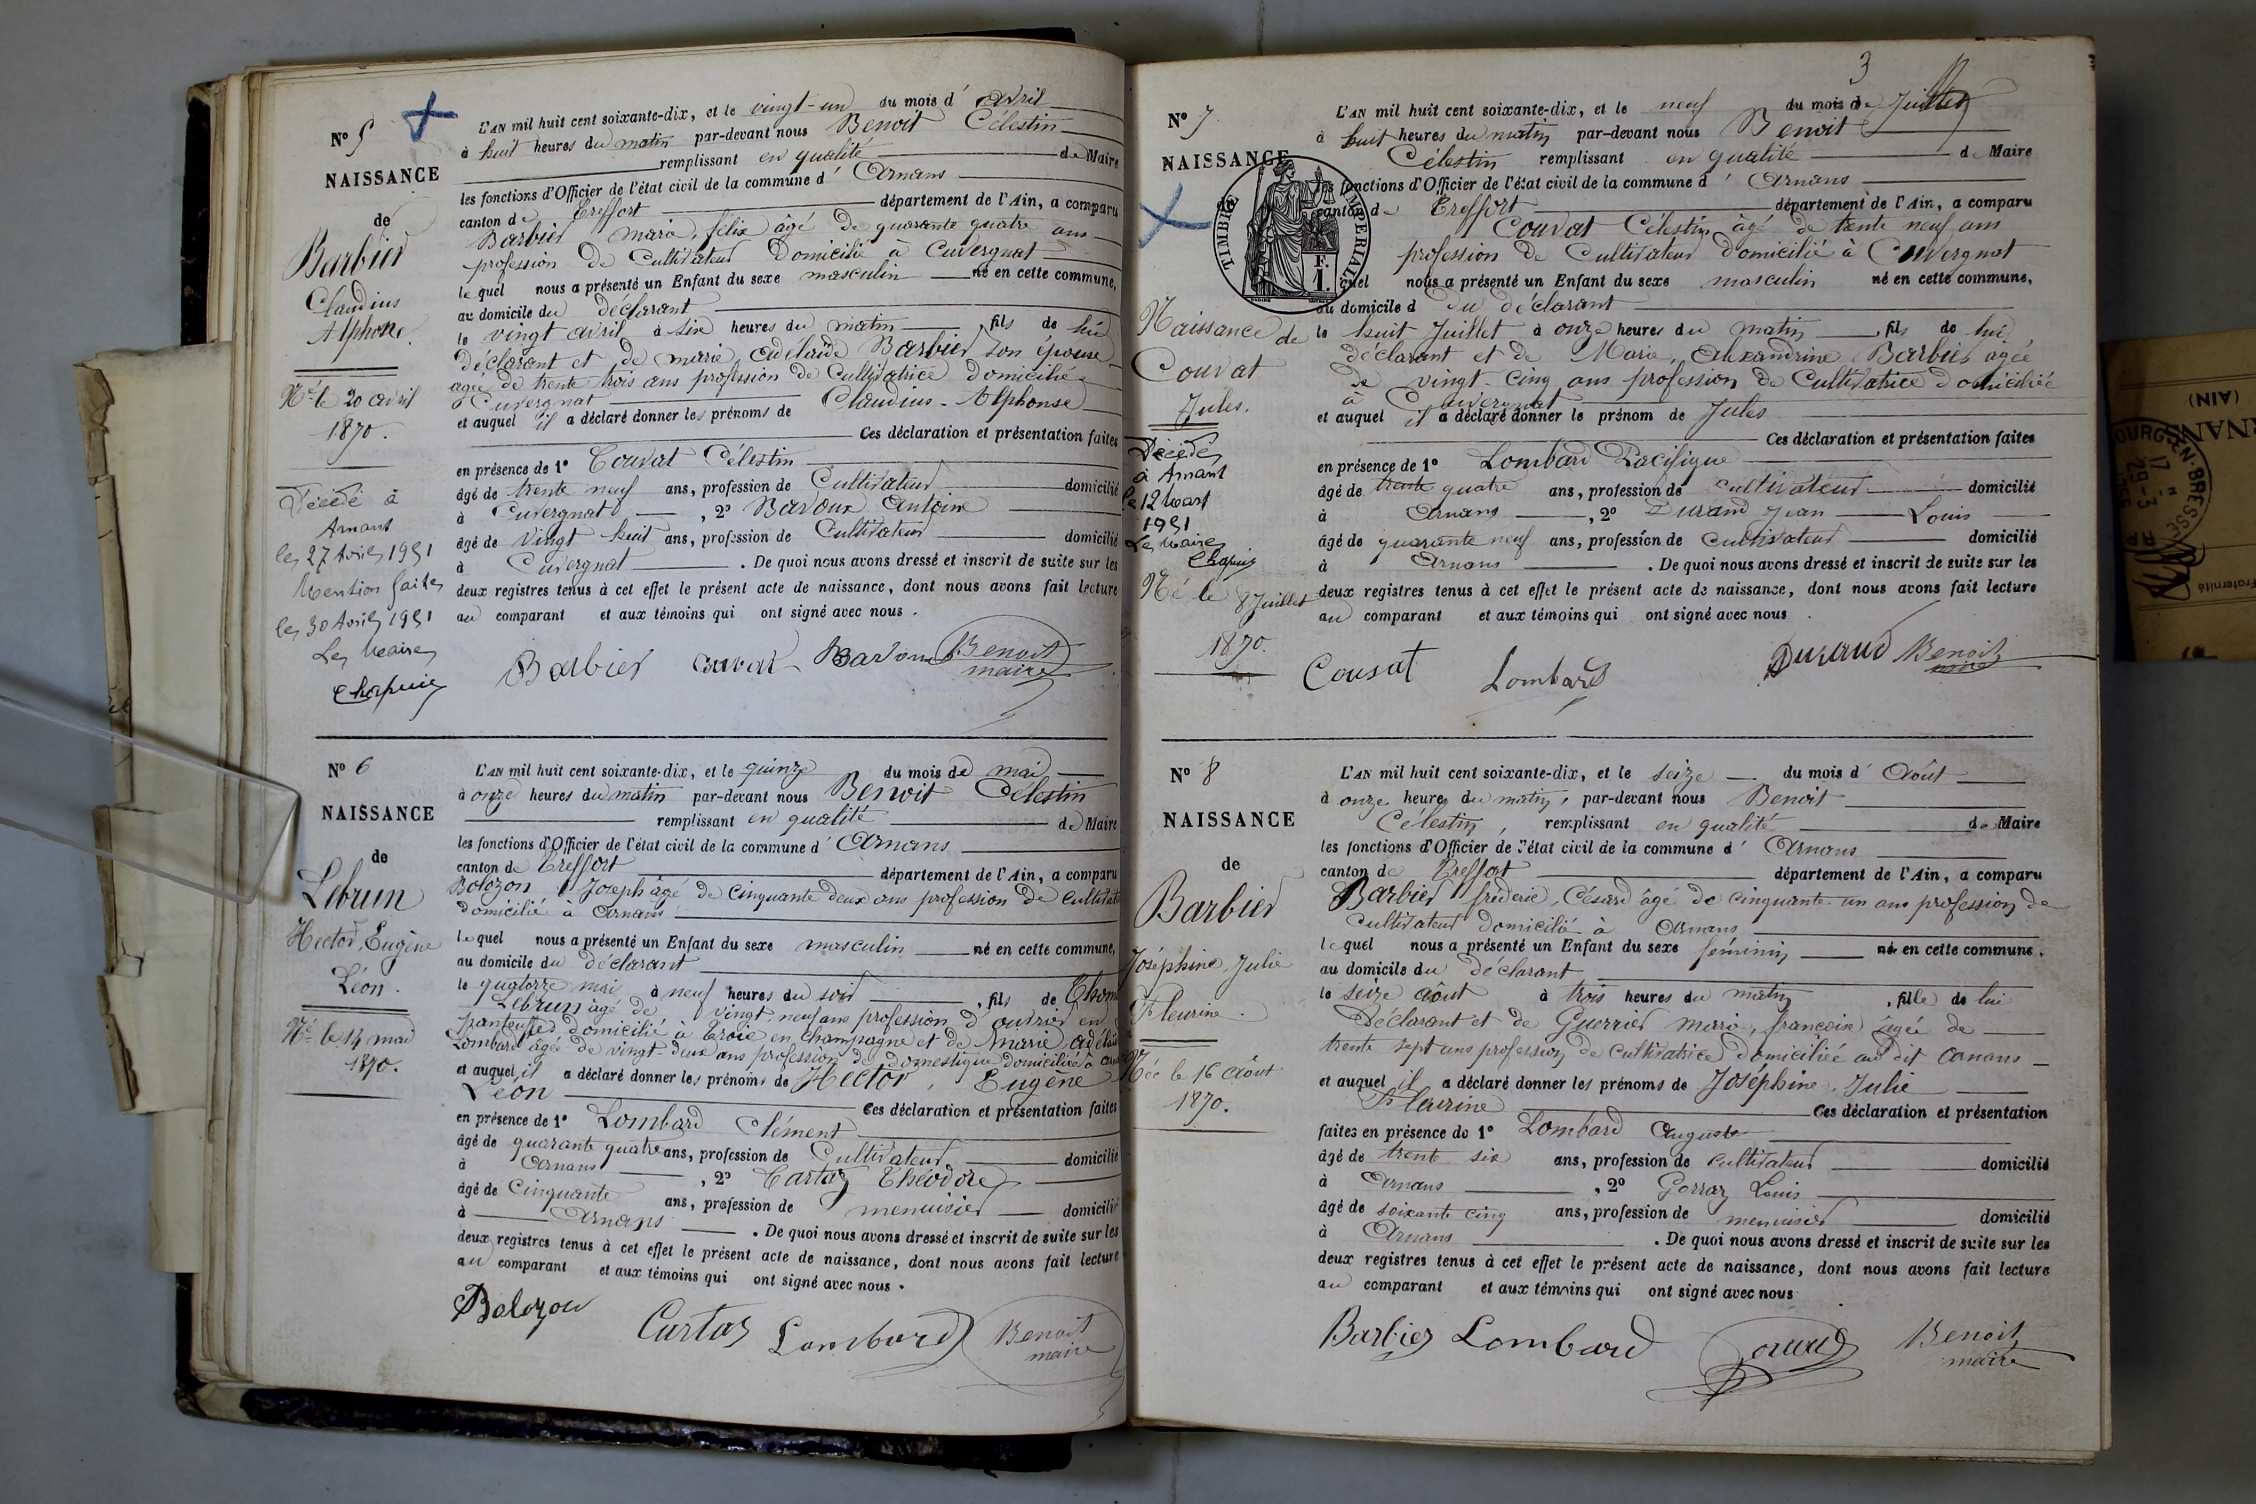 N° 5
NAISSANCE
de
Barbier
Claudius
Alphonse.
Né le 20 avril
1870.
Décédé à
Arnans
le 27 Avril 1951
Mention faite
le 30 Avril 1951
Le Maire
Chapuis
L'AN mil huit cent soixante-dix, et le vingt-un du mois d' Avril
à huit heures du matin par-devant nous Benoit Célestin
remplissant en qualité de Maire
les fonctions d'Officier de l'état civil de la commune d' Arnans
canton de Treffort département de l'Ain, a comparu
Barbier marie, félix âgé de quarante quatre ans
profession de Cultivateur Domicilié à Cuvergnat
le quel nous a présenté un Enfant du sexe masculin né en cette commune,
au domicile du déclarant
le vingt avril à six heures du matin, fils de lui
déclarant et de marie, adélaide Barbier son épouse
agée de trente trois ans profession de Cultivatrice domiciliée
à Cuvergnat
et auquel il a déclaré donner les prénoms de Claudius-Alphonse
Ces déclaration et présentation faites
en présence de 1° Couvat Célestin
âgé de trente neuf ans, profession de Cultivateur domicilié
à Cuvergnat, 2° Bavoux Antoine
âgé de Vingt huit ans, profession de Cultivateur domicilié
à Cuvergnat. De quoi nous avons dressé et inscrit de suite sur les
deux registres tenus à cet effet le présent acte de naissance, dont nous avons fait lecture
au comparant et aux témoins qui ont signé avec nous.
Barbier Couvat Bavoux Benoit
maire
N° 6
NAISSANCE
de
Lebrun
Hector, Eugène
Léon.
Né le 14 mai
1870.
L'AN mil huit cent soixante-dix, et le quinze du mois de mai
à onze heures du matin par-devant nous Benoit Célestin
remplissant en qualité de Maire
les fonctions d'Officier de l'état civil de la commune d' Arnans
canton de Treffort département de l'Ain, a comparu
Bolozon Joseph âgé de cinquante deux ans profession de cultivat
domicilié à Arnans
le quel nous a présenté un Enfant du sexe masculin né en cette commune,
au domicile du déclarant
le quatorze mai à neuf heures du soir, fils de Thom
Lebrun âgé de vingt neuf ans profession d'ouvrier en
pantoufles domicilié à Troie en Champagne et de Marie adélaï
Lombard âgée de vingt-deux ans profession de domestique domiciliée à
et auquel il a déclaré donner les prénoms de Hector, Eugène
Léon
Ces déclaration et présentation faites
en présence de 1° Lombard Clément
âgé de quarante quatre ans, profession de Cultivateur domicilié
à Arnans, 2° Cartaz Théodore
âgé de Cinquante ans, profession de menuisier domicilié
à Arnans. De quoi nous avons dressé et inscrit de suite sur les
deux registres tenus à cet effet le présent acte de naissance, dont nous avons fait lecture
au comparant et aux témoins qui ont signé avec nous.
Bolozon Cartaz Lombard Benoit
maire
3
N° 7
NAISSANCE
TIMBRE IMPERIAL
F.
1.
Naissance de
Couvat
Jules.
Décédé
à Arnans
le 12 Mars
1951
Le Maire
Chapuis
Né le 8 Juillet
1870.
L'AN mil huit cent soixante-dix, et le neuf du mois de Juillet
à huit heures du matin par-devant nous Benoit
Célestin remplissant en qualité de Maire
les fonctions d'Officier de l'état civil de la commune d' Arnans
canton de Treffort département de l'Ain, a comparu
Couvat Célestin âgé de trente neuf ans
profession de Cultivateur domicilié à Cuvergnat
quel nous a présenté un Enfant du sexe masculin né en cette commune,
au domicile d du déclarant
le huit Juillet à onze heures du matin, fils de lui
déclarant et de Marie, Alexandrine Barbier agée
de vingt-cinq ans profession de Cultivatrice domiciliée
à Cuvergnat
et auquel il a déclaré donner le prénom de Jules
Ces déclaration et présentation faites
en présence de 1° Lombard Pacifique
âgé de trente quatre ans, profession de cultivateur domicilié
à Arnans, 2° Durand Jean Louis
âgé de quarante neuf ans, profession de cultivateur domicilié
à Arnans. De quoi nous avons dressé et inscrit de suite sur les
deux registres tenus à cet effet le présent acte de naissance, dont nous avons fait lecture
au comparant et aux témoins qui ont signé avec nous.
Couvat Lombard Durand Benoit
maire
N° 8
NAISSANCE
de
Barbier
Joséphine, Julie
Fleurine.
Née le 16 Août
1870.
L'AN mil huit cent soixante-dix, et le seize du mois d' Août
à onze heures du matin, par-devant nous Benoit
Célestin, remplissant en qualité de Maire
les fonctions d'Officier de l'état civil de la commune d' Arnans
canton de Treffort département de l'Ain, a comparu
Barbier fréderic, César âgé de cinquante-un ans profession de
Cultivateur domicilié à Arnans
le quel nous a présenté un Enfant du sexe féminin né en cette commune,
au domicile du déclarant
le seize août à trois heures du matin, fille de lui
Déclarant et de Guerrier marie, françoise âgée de
trente sept ans profession de cultivatrice domiciliée au dit Arnans
et auquel il a déclaré donner les prénoms de Joséphine, Julie
Fleurine Ces déclaration et présentation
faites en présence de 1° Lombard Auguste
âgé de trente six ans, profession de cultivateur domicilié
à Arnans, 2° Louis
âgé de soixante cinq ans, profession de menuisier domicilié
à Arnans. De quoi nous avons dressé et inscrit de suite sur les
deux registres tenus à cet effet le présent acte de naissance, dont nous avons fait lecture
au comparant et aux témoins qui ont signé avec nous
Barbier Lombard Benoit
maire
(AIN)
BOURG-EN-BRESSE
17
29-3
Fraternité